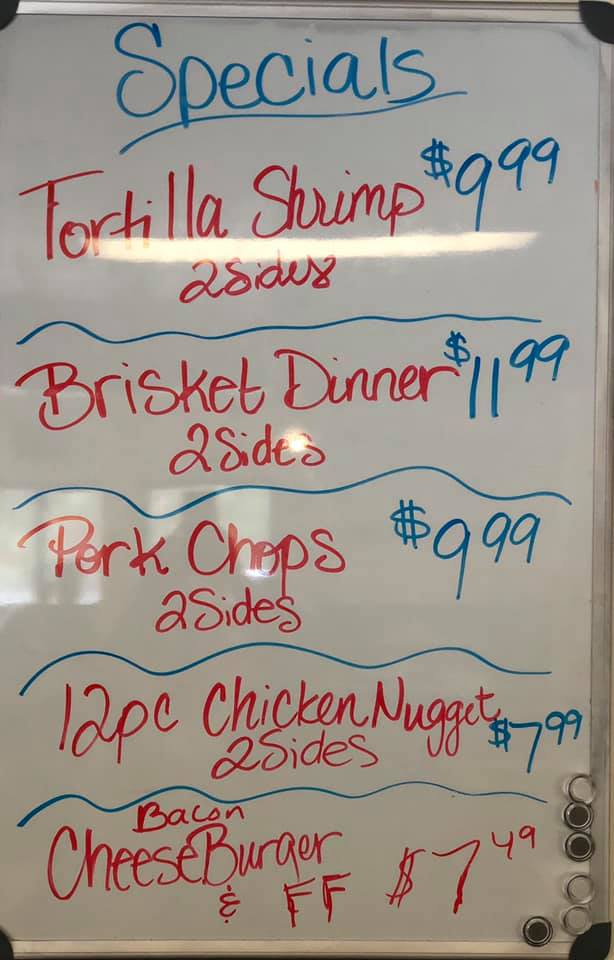 Specials
Tortilla Shrimp $9.99
2 Sides
Brisket Dinner $11.99
2 Sides
Pork Chops $9.99
2 Sides
12pc Chicken Nugget $7.99
2 Sides
Bacon
CheeseBurger $7.49
& FF